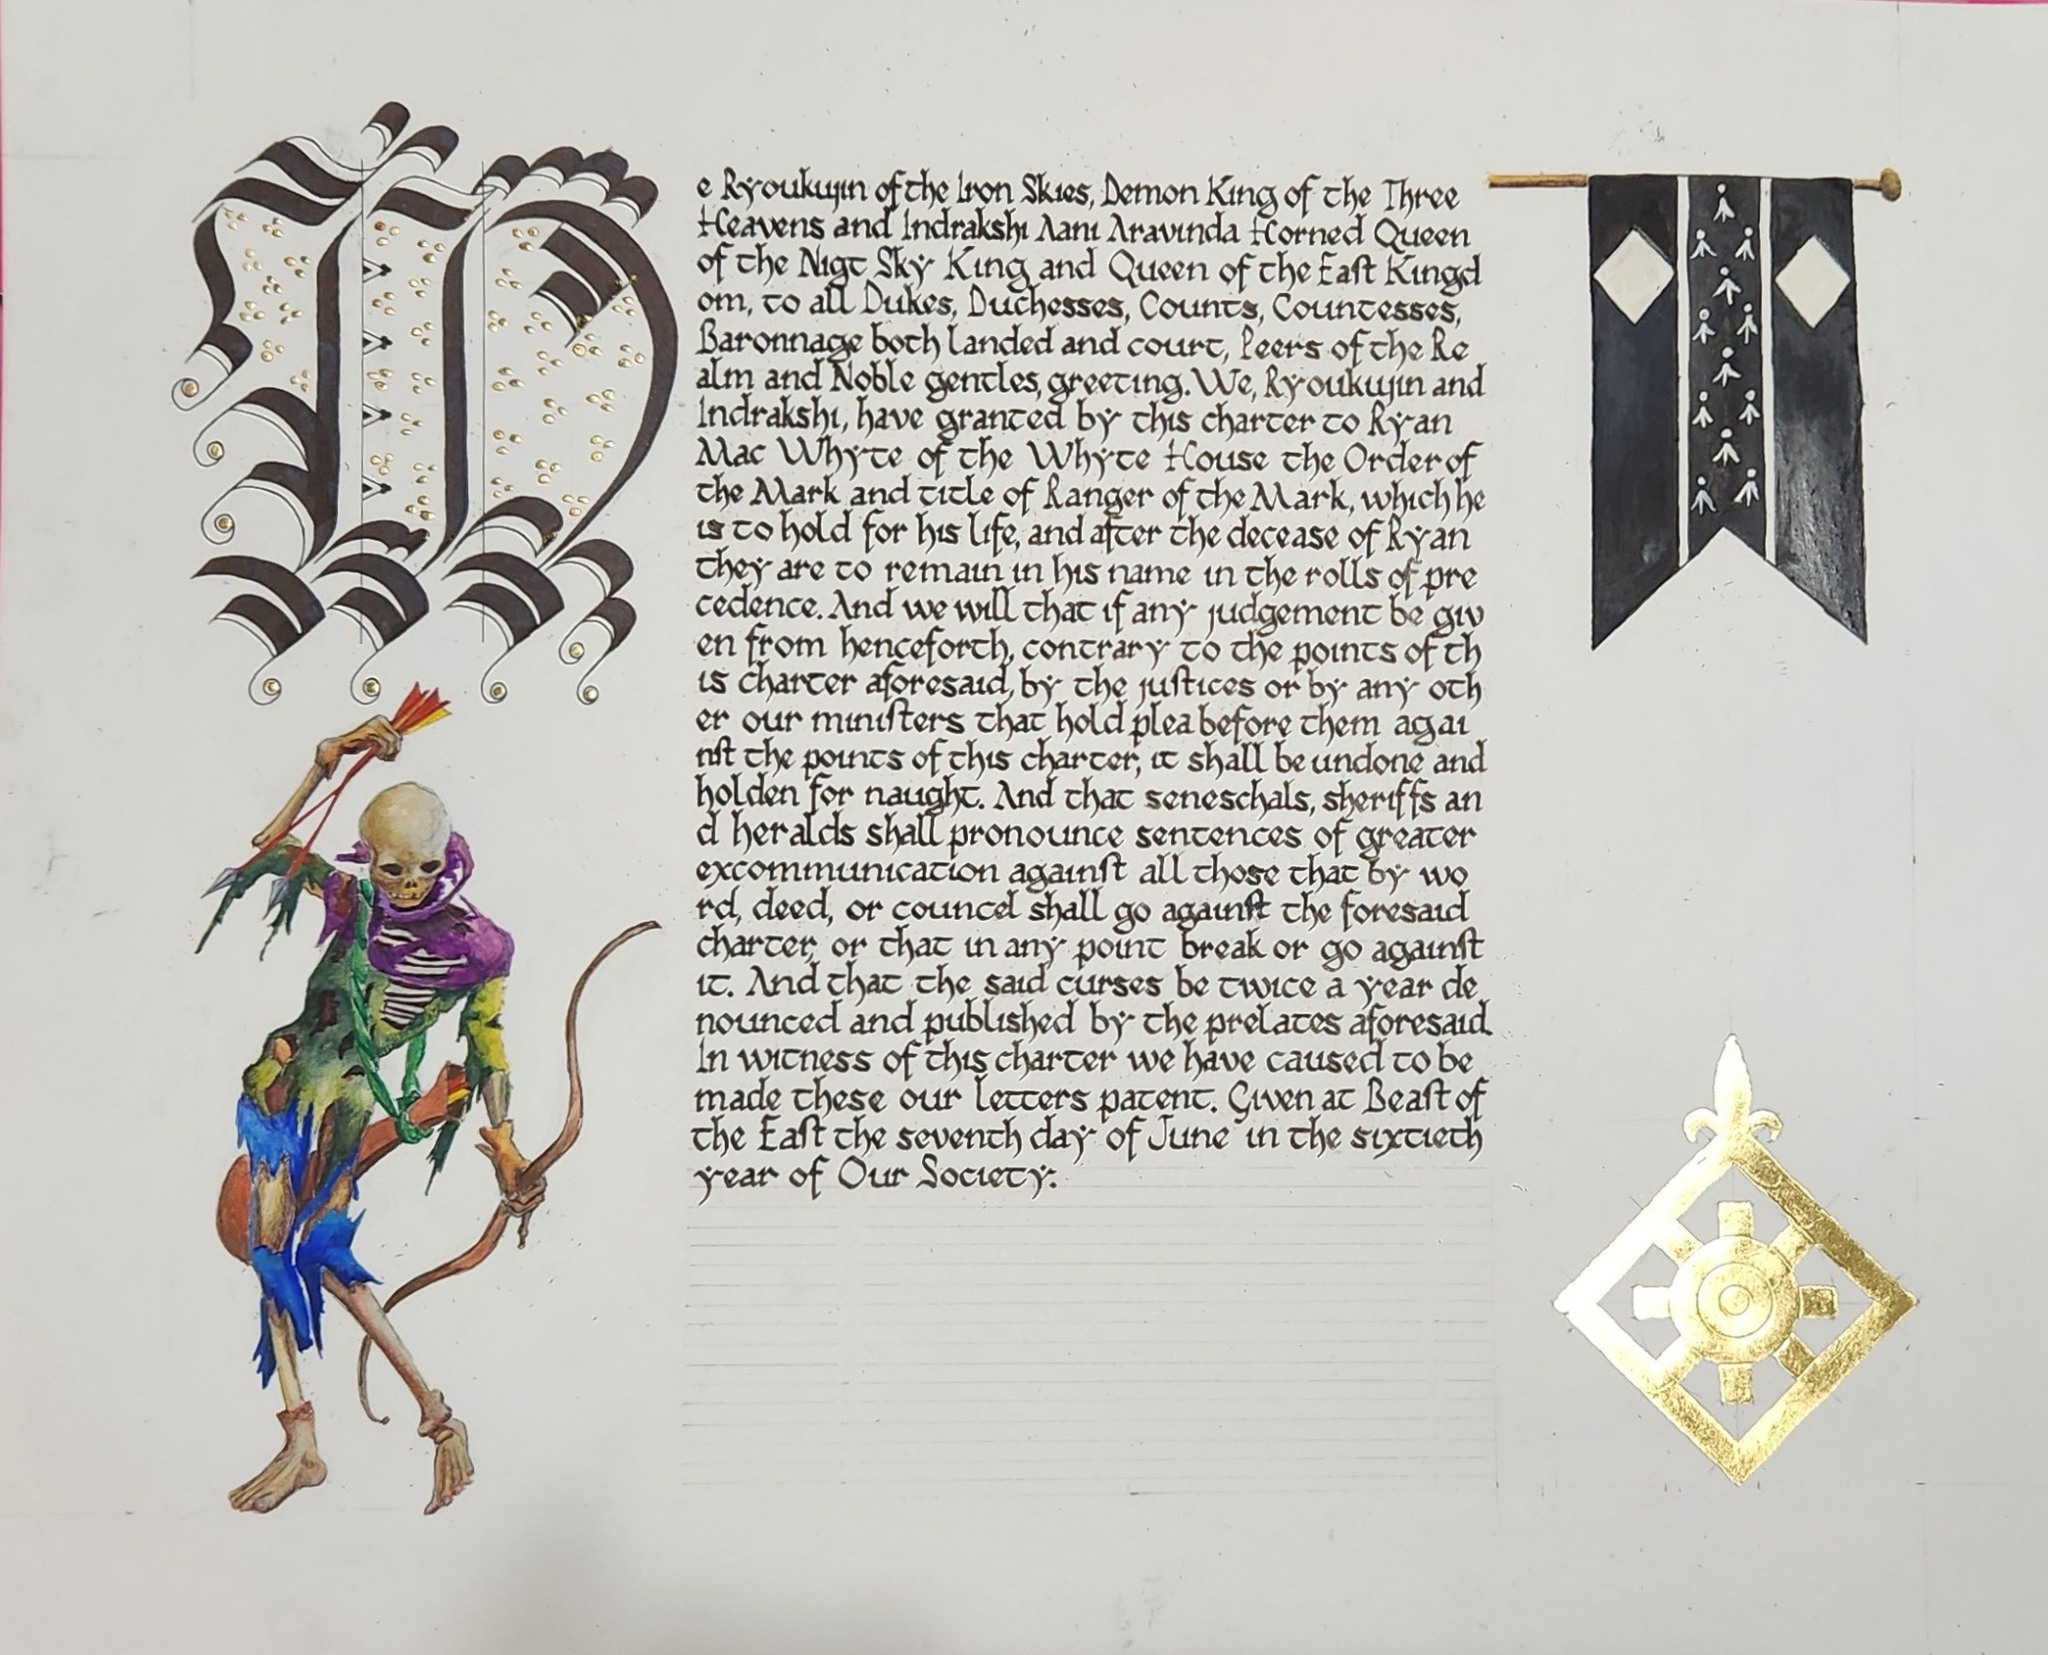 We Ryoukujin of the Iron Skies, Demon King of the Three
Heavens and Indrakshi Aani Aravinda Horned Queen
of the Nigt Sky King and Queen of the East Kingd
om, to all Dukes, Duchesses, Counts, Countesses,
Baronnage both landed and court, Peers of the Re
alm and Noble gentles, greeting. We, Ryoukujin and
Indrakshi, have granted by this charter to Ryan
Mac Whyte of the Whyte House the Order of
the Mark and title of Ranger of the Mark, which he
is to hold for his life, and after the decease of Ryan
they are to remain in his name in the rolls of pre
cedence. And we will that if any judgement be giv
en from henceforth, contrary to the points of th
is charter aforesaid, by the justices or by any oth
er our ministers that hold plea before them agai
nst the points of this charter, it shall be undone and
holden for naught. And that seneschals, sheriffs an
d heralds shall pronounce sentences of greater
excommunication against all those that by wo
rd, deed, or councel shall go against the foresaid
charter, or that in any point break or go against
it. And that the said curses be twice a year de
nounced and published by the prelates aforesaid.
In witness of this charter we have caused to be
made these our letters patent. Given at Beast of
the East the seventh day of June in the sixtieth
year of Our Society.